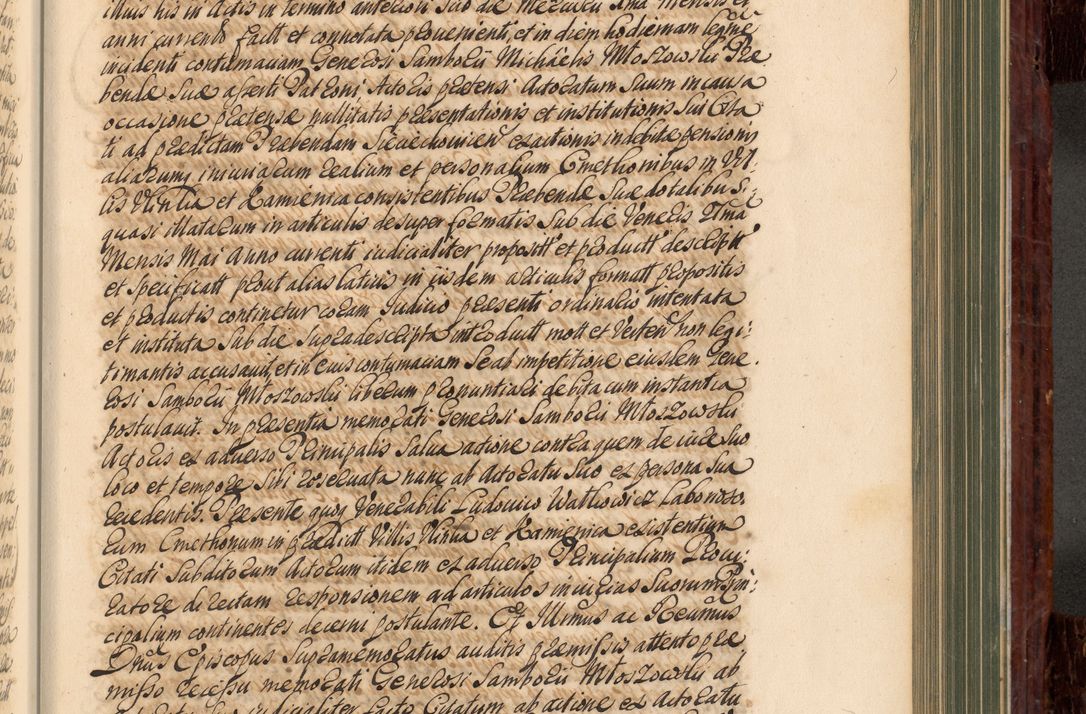 illius his in Actis in termino anteriori sub die Mercurii ima Mensis et
anni currentis facit et connotata provenienti, et in diem hodiernam legitime
incidenti contumaciam Generosi Samborii Michaelis Młoszowski Præ
bendæ Suæ asserti Patroni Actoris prætensi Actoratum Suum in causa
occasione prætensæ nullitatis præsentationis et institutionis Sui Cita
ti ad prædictam Præbendam Siewechovien exactionis indebitæ pensionis
aliarumq iniuriarum realium et personalium Cmethonibus in Vil:
lis Vlinia et Kamienica consistentibus Præbendæ Suæ dotalibus
quasi illatarum in articulis desuper formatis Sub die Veneris 7ma
Mensis Mai Anno currenti iudicialiter proposit et product descript
et specificat prout alias latius in iisdem articulis format propositis
et productis continetur coram Iudicio præsenti ordinario intentata
et instituta Sub die Supradescripta introduct mott et Verten non legi:
timantis accusavit, et in eius contumaciam Se ab impetitione eiusdem Gene
rosi Samborii Młoszowski liberum pronuntiari debita cum instantia
postulavit. In præsentia memorati Generosi Samborii Młoszowski
Actoris ex adverso Principalis Salva actione contra quem de iure Suo
loco et tempore Sibi reservata nunc ab Actoratu Suo ex persona Sua
recedentis. Præsente quoq Venerabili Ludovico Watkowicz Laborioso
rum Cmethonum in prædict Villis Vlinia et Kamienica existentium
Citati Subditorum Actorum itidem ex adverso Principalium Procu:
ratore directam responsionem ad articulos iniurias Suorum Prin:
cipalium continentes decerni postulante. Et Illmus ac Rrdmus
Dnus Episcopus Supramemoratus auditis præmissis attento præ
misso recessu memorati Generosi Samborii Młoszowski ab
iudicialiter facto Citatum ab actione ex Actoratu